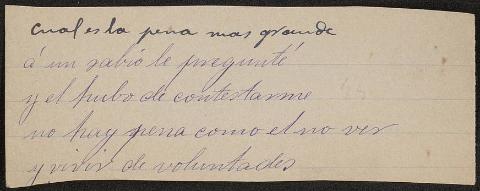 cual es la pena mas grande
á un sabio le pregunté
y el hubo de contestarme
no hay pena como el no ver
y vivir de voluntades